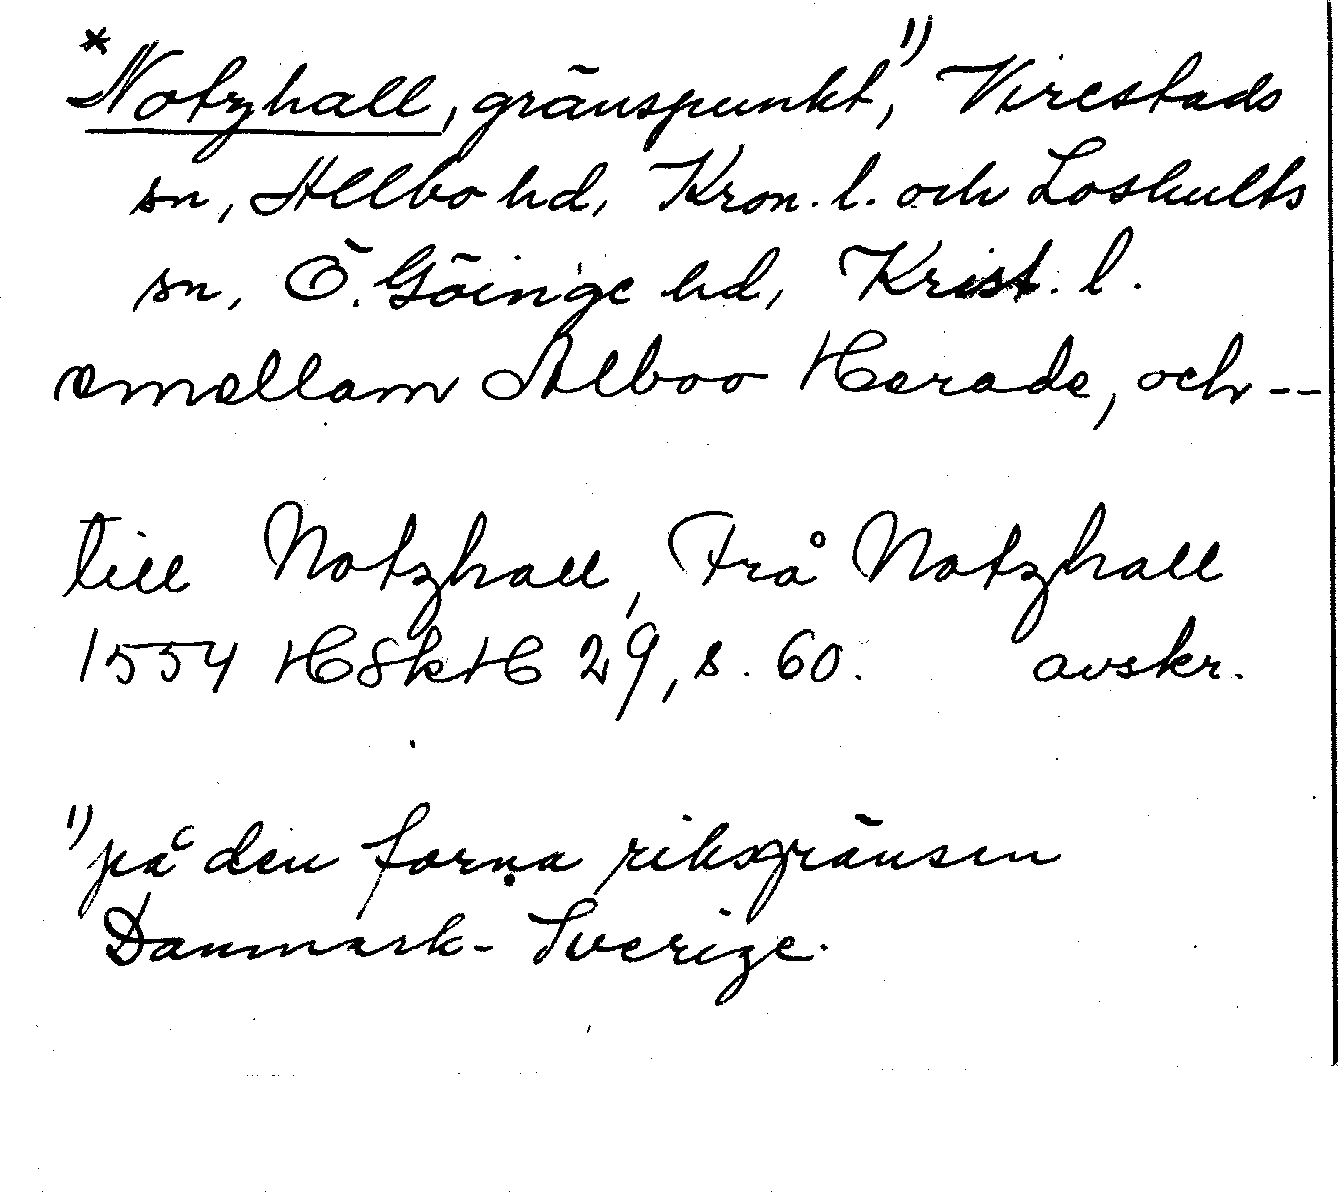 *Notzhall, gränspunkt,¹⁾ Virestads
sn, Allbo hd, Kron. l. och Loshults
sn, Ö. Göinge hd, Krist. l.
emellam Alboo Herade, och --
till Notzhall, Frå Notzhall
1554 HSkH 29, s. 60. avskr.
¹⁾ på den forna riksgränsen
Danmark - Sverige.